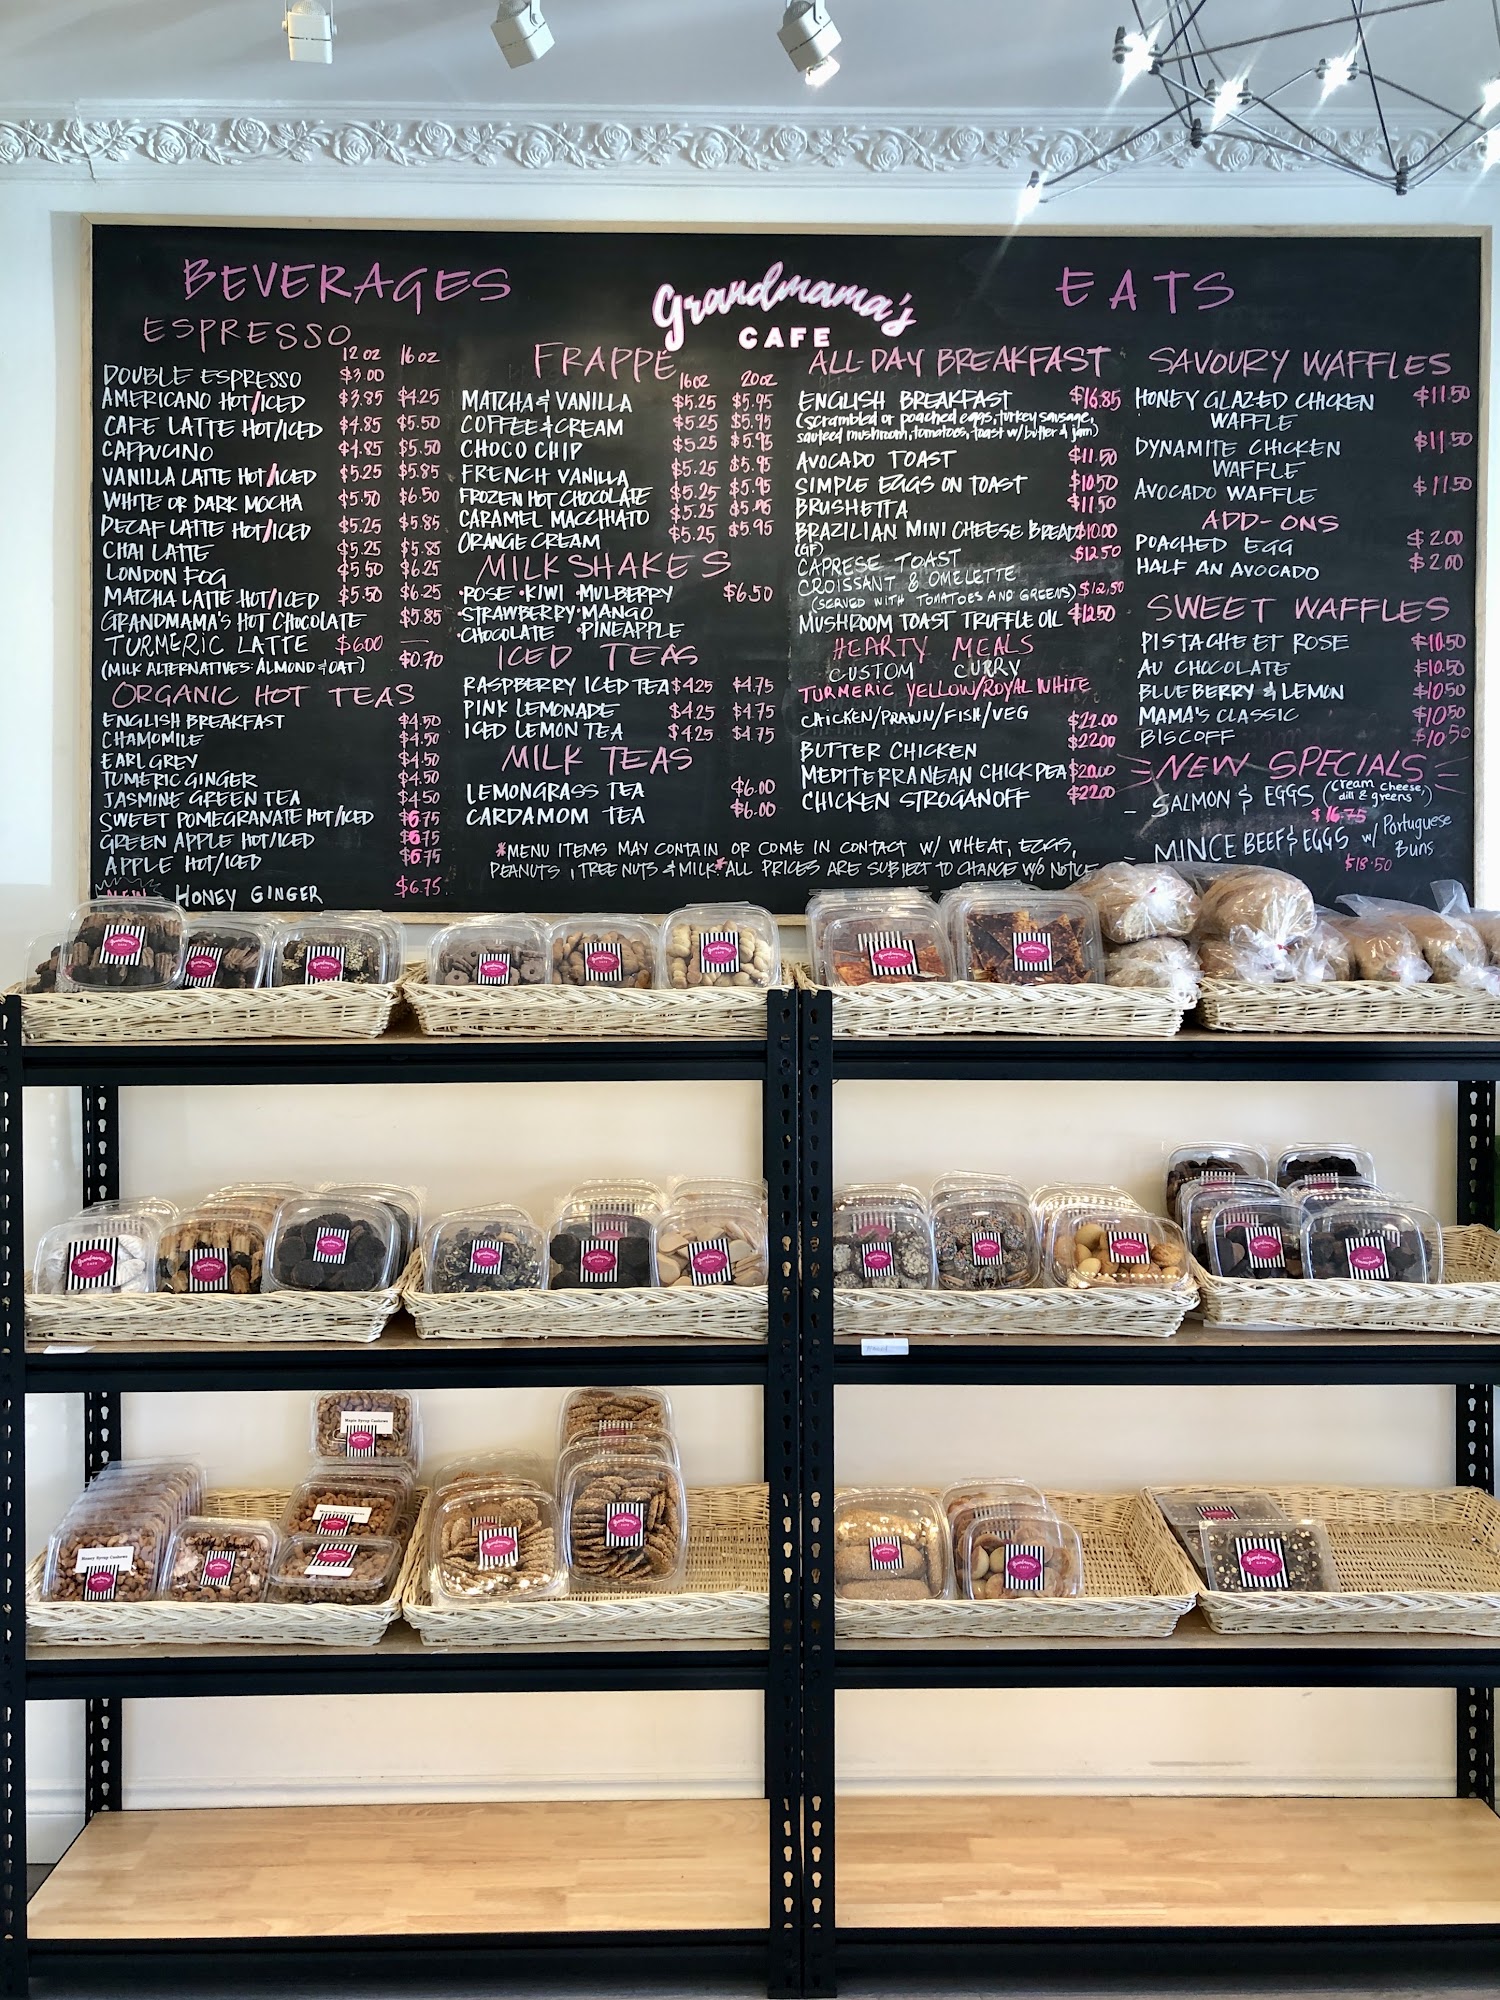 BEVERAGES
ESPRESSO
12 OZ 16 OZ
DOUBLE ESPRESSO $3.00
AMERICANO HOT/ICED $3.85 $4.25
CAFE LATTE HOT/ICED $4.85 $5.50
CAPPUCINO $4.85 $5.50
VANILLA LATTE HOT/ICED $5.25 $5.85
WHITE OR DARK MOCHA $5.50 $6.50
DECAF LATTE HOT/ICED $5.25 $5.85
CHAI LATTE $5.25 $5.85
LONDON FOG $5.50 $6.25
MATCHA LATTE HOT/ICED $5.50 $6.25
GRANDMAMA'S HOT CHOCOLATE $5.85
TURMERIC LATTE $6.00 —
(MILK ALTERNATIVES: ALMOND & OAT) $0.70
ORGANIC HOT TEAS
ENGLISH BREAKFAST $4.50
CHAMOMILE $4.50
EARL GREY $4.50
TUMERIC GINGER $4.50
JASMINE GREEN TEA $4.50
SWEET POMEGRANATE HOT/ICED $6.75
GREEN APPLE HOT/ICED $6.75
APPLE HOT/ICED $6.75
NEW HONEY GINGER $6.75
Grandmama's
CAFE
FRAPPE
16OZ 20OZ
MATCHA & VANILLA $5.25 $5.95
COFFEE & CREAM $5.25 $5.95
CHOCO CHIP $5.25 $5.95
FRENCH VANILLA $5.25 $5.95
FROZEN HOT CHOCOLATE $5.25 $5.95
CARAMEL MACCHIATO $5.25 $5.95
ORANGE CREAM $5.25 $5.95
MILKSHAKES
•ROSE •KIWI •MULBERRY $6.50
•STRAWBERRY •MANGO
•CHOCOLATE •PINEAPPLE
ICED TEAS
RASPBERRY ICED TEA $4.25 $4.75
PINK LEMONADE $4.25 $4.75
ICED LEMON TEA $4.25 $4.75
MILK TEAS
LEMONGRASS TEA $6.00
CARDAMOM TEA $6.00
*MENU ITEMS MAY CONTAIN OR COME IN CONTACT W/ WHEAT, EGGS,
PEANUTS, TREE NUTS & MILK*ALL PRICES ARE SUBJECT TO CHANGE W/O NOTICE
EATS
ALL-DAY BREAKFAST
ENGLISH BREAKFAST $16.85
(scrambled or poached eggs, turkey sausage,
sauteed mushroom, tomatoes, toast w/ butter & jam)
AVOCADO TOAST $11.50
SIMPLE EGGS ON TOAST $10.50
BRUSHETTA $11.50
BRAZILIAN MINI CHEESE BREAD $10.00
(GF)
CAPRESE TOAST $12.50
CROISSANT & OMELETTE
(SERVED WITH TOMATOES AND GREENS) $12.50
MUSHROOM TOAST TRUFFLE OIL $12.50
HEARTY MEALS
CUSTOM CURRY
TURMERIC YELLOW/ROYAL WHITE
CHICKEN/PRAWN/FISH/VEG $22.00
BUTTER CHICKEN $22.00
MEDITERRANEAN CHICKPEA $20.00
CHICKEN STROGANOFF $22.00
SAVOURY WAFFLES
HONEY GLAZED CHICKEN $11.50
WAFFLE
DYNAMITE CHICKEN $11.50
WAFFLE
AVOCADO WAFFLE $11.50
ADD-ONS
POACHED EGG $2.00
HALF AN AVOCADO $2.00
SWEET WAFFLES
PISTACHE ET ROSE $10.50
AU CHOCOLATE $10.50
BLUEBERRY & LEMON $10.50
MAMA'S CLASSIC $10.50
BISCOFF $10.50
NEW SPECIALS
- SALMON & EGGS (cream cheese,
dill & greens)
$16.75
- MINCE BEEF & EGGS w/ Portuguese
Buns
$18.50
Maple Syrup Cashews
Honey Syrup Cashews